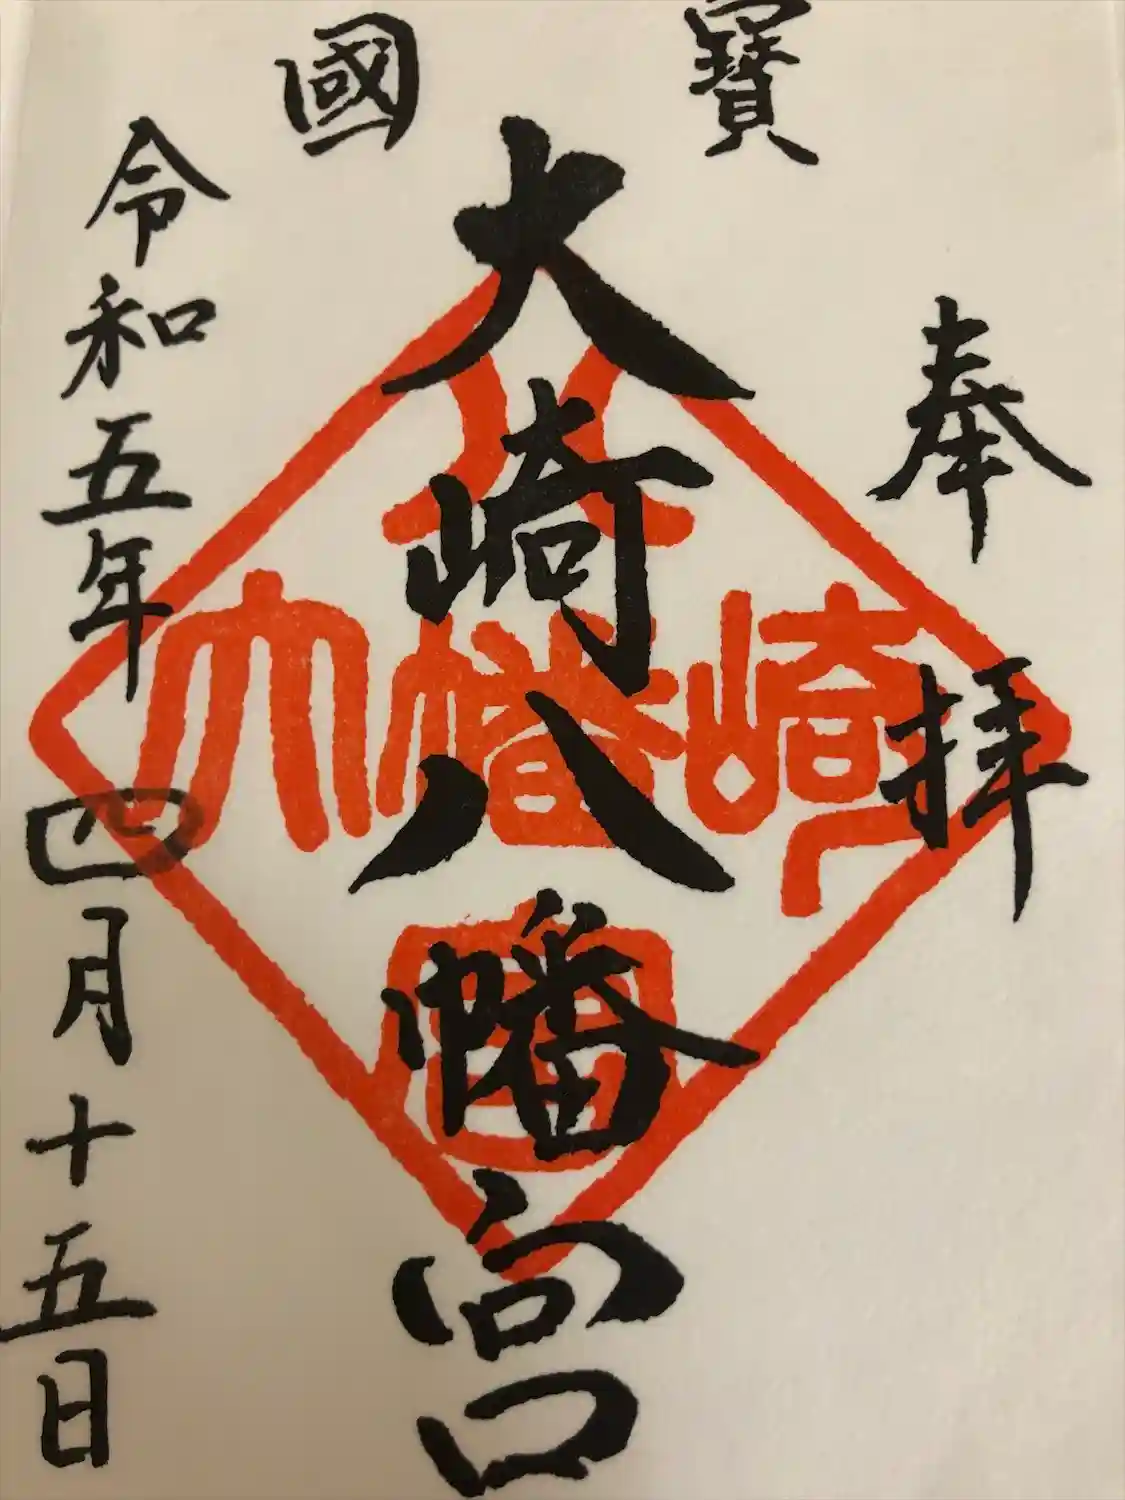 國寶
奉拝
大崎八幡宮
令和五年四月十五日
八
大幡崎
宮